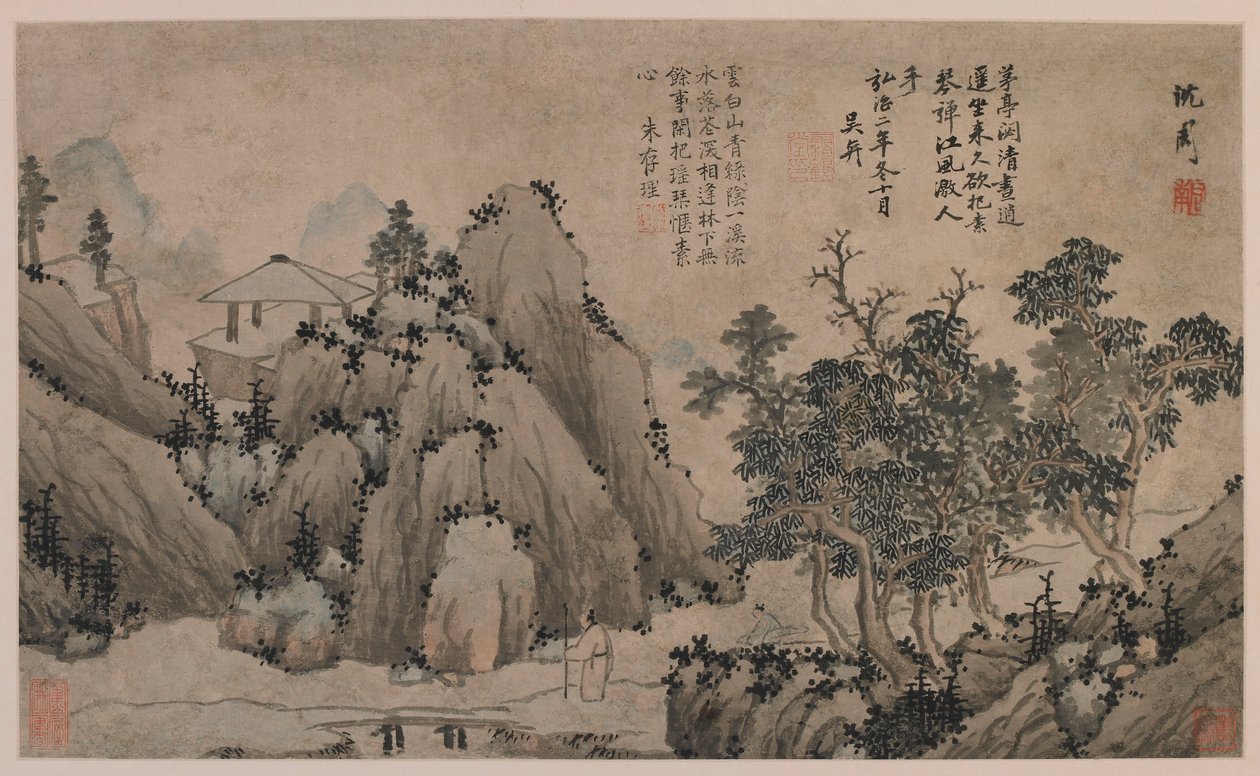 沈周
茅亭闃清晝逍
遥坐来久欲把素
琴彈江風激人
手
弘治二年冬十月
吳奕
雲白山青綠陰一溪流
水落花深相逢林下無
餘事閑把瑶琹愜素
心
朱存理